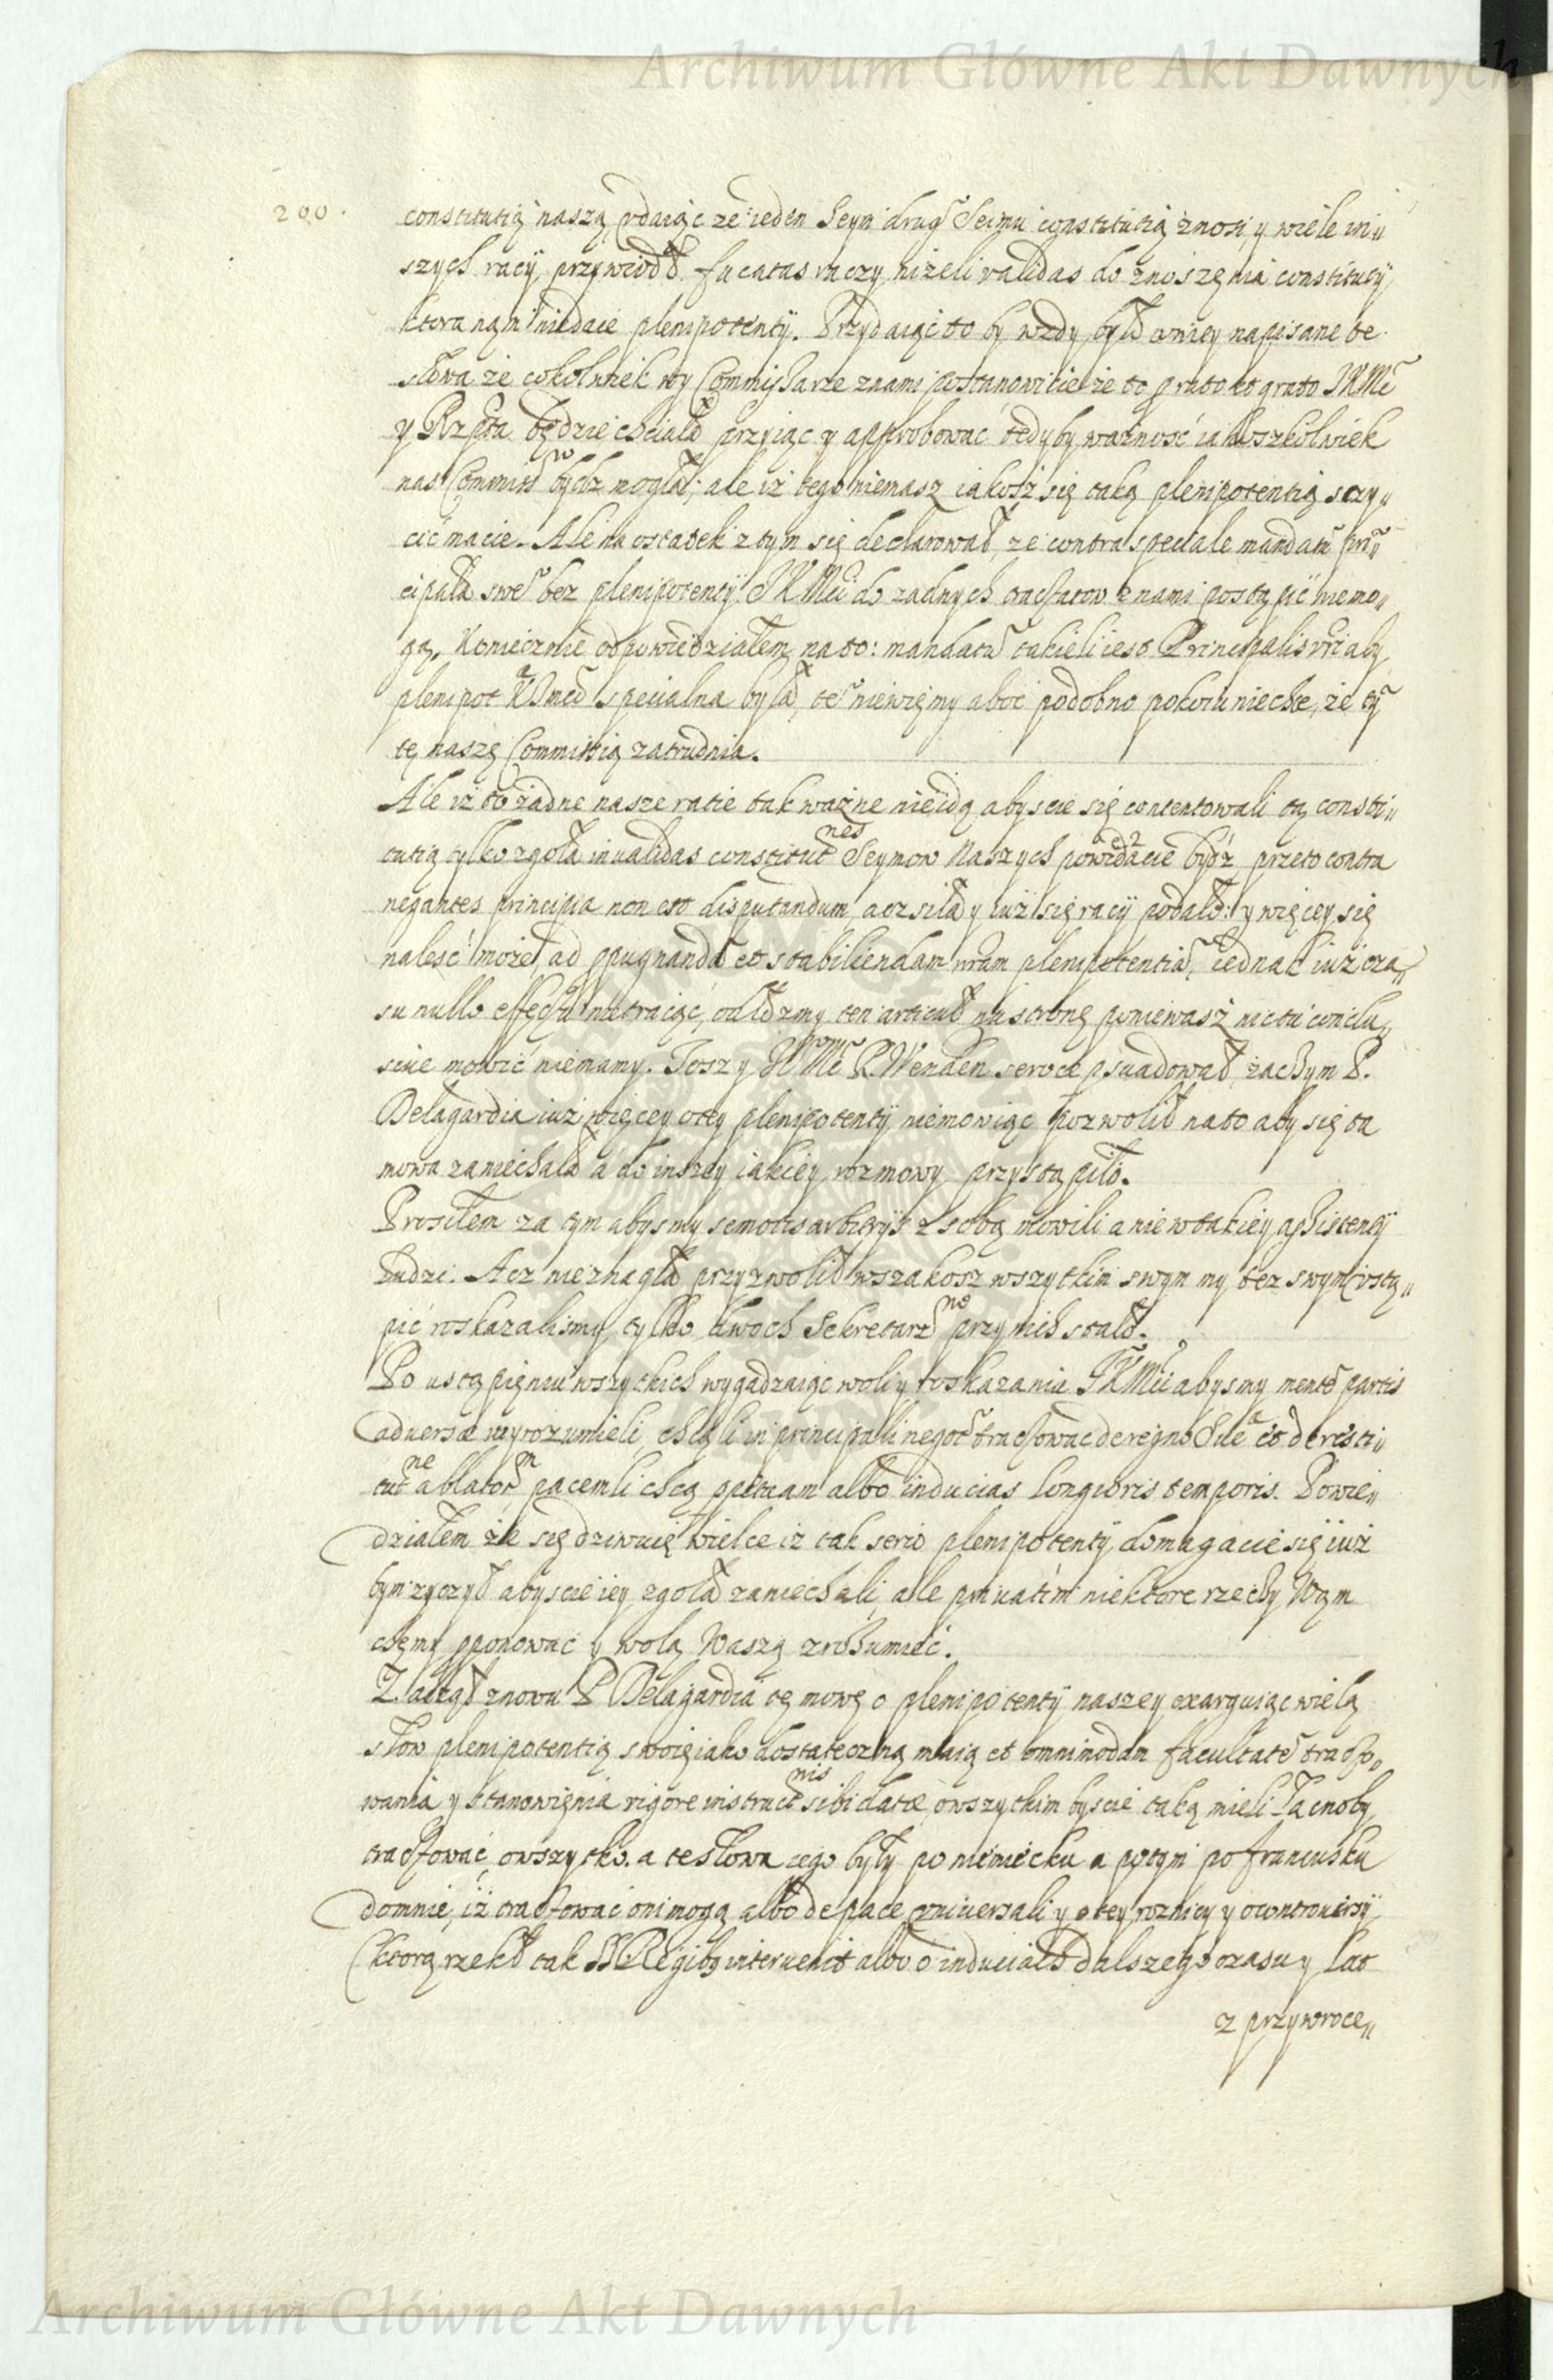 Archiwum Główne Akt Dawnych
200.
constitutią naszą, udaiąc ze ieden Seym drugi Seimu constitutią znosi, y wiele in„
szych racÿ przywiodł fucatas raczy, niżeli validas do znoszenia constitucÿ
ktora nam niedaie plenipotentÿ. Przydaiąc to by wżdy było wniey napisane te
słowa że cokolwiek wy Commissarze znami postanowicie że to prato et grato JKMć
y Rzpta będzie chciała przyiąc y approbować tedyby ważność iakoszkolwiek
nas Commissów bydz mogła; ale iż tego niemasz iakosz się taką plenipotentią szczy„
cić macie. Ale na ostatek z tym się declarował, że contra speciale mandatũ prin„
cipała sweº bez plenipotencÿ JKMći do żadnych tractatow znami postąpić niemo„
gą. Koniecznie odpowiedziałem na to: mandatũ takieli iest Principalis vrĩ aby
plenipot KJmći specialna była, teº niewiemy aboć podobno pokoiu niechce, że tÿ
tę naszę Commissią zatrudnia.
Ale iż to żadne nasze ratie tak ważne nieidą abyscie się contentowali tą consti„
tutią tylko zgoła inualidas constitutnes Seymow Naszych powiedacie bydź, przeto contra
negantes principia non est disputandum, acz siła y iuż się racÿ podało: y więcey się
naleść może ad ppugnandã et stabiliendam nram plenipotentiã, iednak iuż cza„
su nullo effectu nietraciąc, odłożmy ten articuł na stronę ponieważ nic tu conclu„
siue mowić niemamy. Toż y JMć P. Wenden serote psuadował, zaczym P.
Delagardia iuż więcey o tey plenipotentÿ niemowiąc pozwolił na to aby się ta
mowa zaniechała a do inszey iakiey rozmowy przystąpiło.
Prosiłem za tym abysmy semotis arbitrÿs z sobą mowili a nie w takiey assistentÿ
Ludzi. Acz nieznagła przyzwolił wszakosz wszytkim swym my tez swym ustą„
pić roskazalismy, tylko dwoch Sekretarz przy nich stało.
Po ustąpieniu wszytkich wygadzaiąc woli y roskazaniu JKMći abysmy mentẽ partis
aduersæ wyrozumieli, chcąli in principali negotº tractować de regno Sueº et de resti„
tutne ablator̃, pacemli chcą ppetuam albo inducias longioris temporis. Powie„
działem że się dziwuię wielce iż tak serio plenipotentÿ domagacie się iuż
bym zyczył abyscie iey zgoła zaniechali, ale priuatim niektore rzeczy Wam
chcemy pponować y wolą Waszą zrozumieć.
Zaczął znowu P Delagardia tę mowę o plenipotentÿ naszey exarguiąc wielą
słow plenipotentią swoię iako dostateczną maią et omnimodam facultatẽ tracto„
wania y stanowienia rigore instructnis sibi datæ, o wszytkim byscie taką mieli łacnoby
tractować o wszytko. a te słowa iego były po niemiecku a potym po francusku
do mnie, iż tractować oni mogą albo de pace vniuersali y o tey rożnicy y o controuersÿ
(ktorą rzekł tak SSRegibq interuenit albo o induciach dalszego czasu y lat
z przywroce„
Archiwum Główne Akt Dawnych